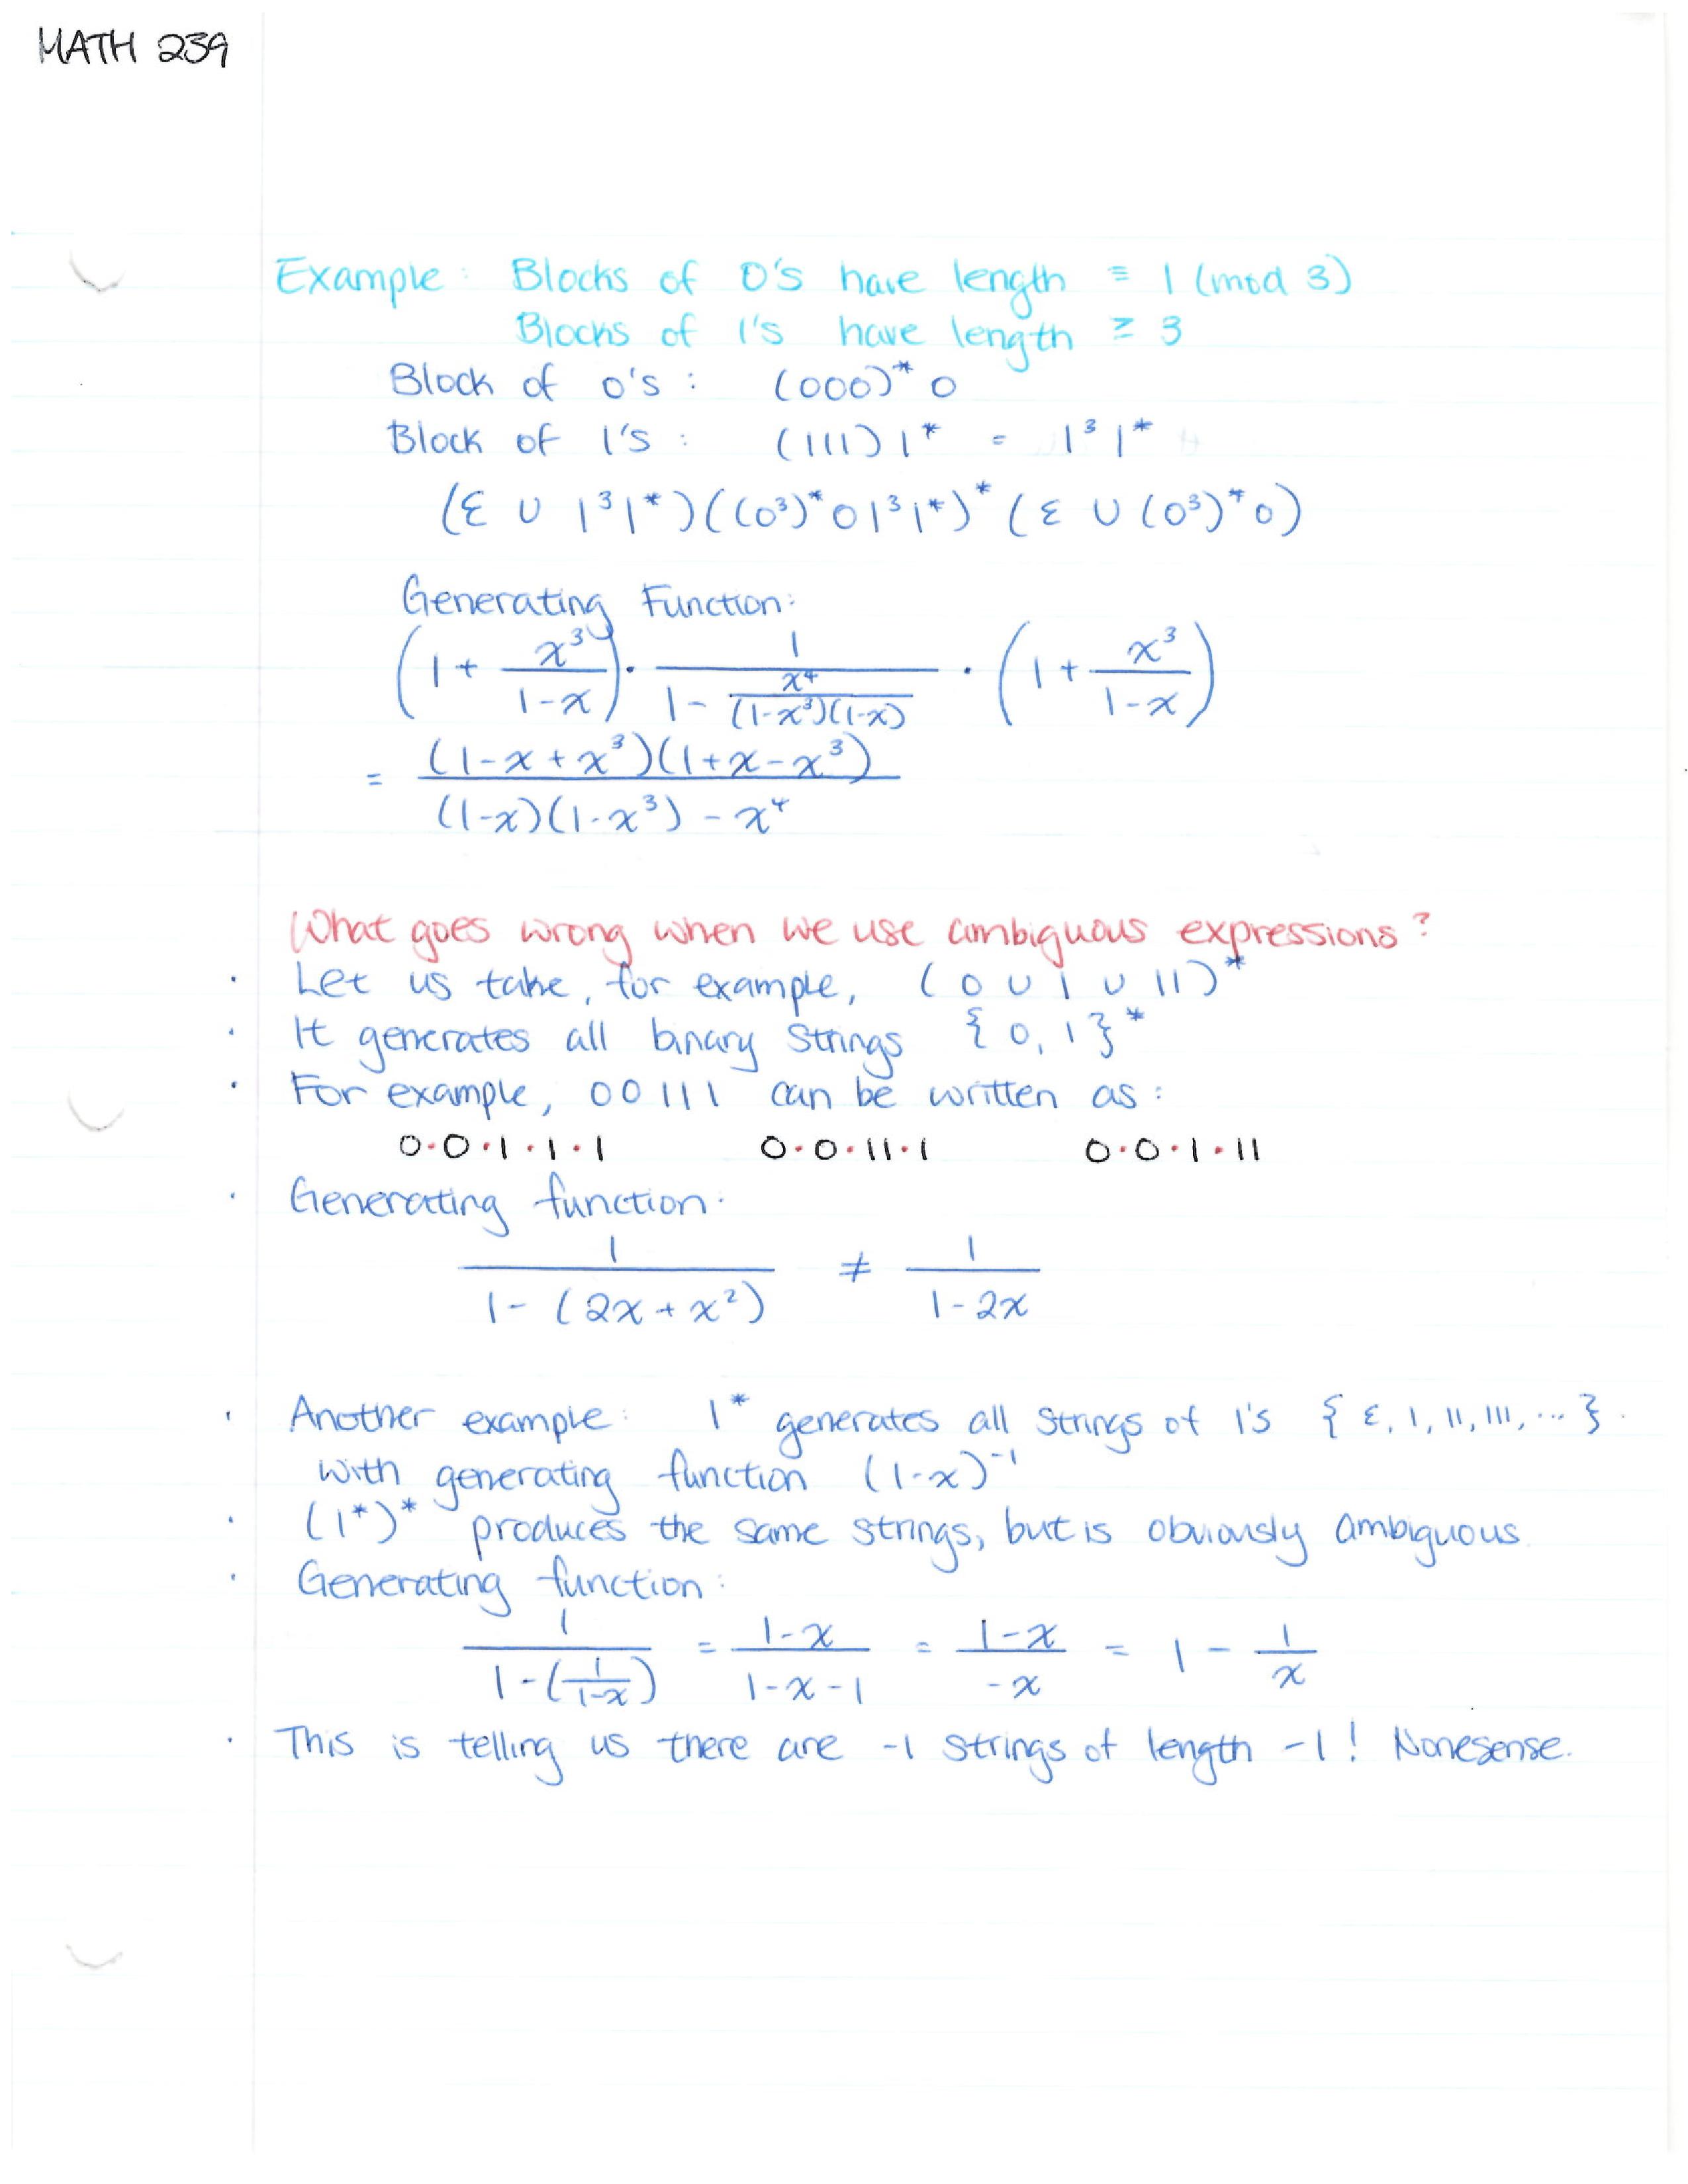 MATH 239
Example: Blocks of 0's have length ≡ 1 (mod 3)
Blocks of 1's have length ≥ 3
Block of 0's : (000)* 0
Block of 1's : (111) 1* = 1³ 1*
(ε ∪ 1³1*)((0³)*01³1*)*(ε ∪ (0³)*0)
Generating Function:
(1 + x³/(1-x)) · 1/(1 - x⁴/((1-x³)(1-x))) · (1 + x³/(1-x))
= (1-x+x³)(1+x-x³)/((1-x)(1-x³) - x⁴)
What goes wrong when we use ambiguous expressions?
· Let us take, for example, (0 ∪ 1 ∪ 11)*
· It generates all binary strings {0,1}*
· For example, 00111 can be written as:
0·0·1·1·1 0·0·11·1 0·0·1·11
· Generating function:
1/(1-(2x+x²)) ≠ 1/(1-2x)
· Another example: 1* generates all strings of 1's {ε, 1, 11, 111, ...}.
with generating function (1-x)⁻¹
· (1*)* produces the same strings, but is obviously ambiguous.
· Generating function:
1/(1-(1/(1-x))) = (1-x)/(1-x-1) = (1-x)/(-x) = 1 - 1/x
· This is telling us there are -1 strings of length -1! Nonesense.